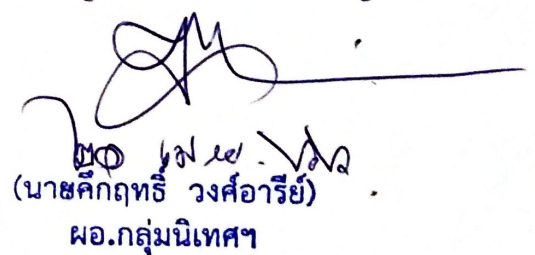 ๒๑ เม.ย.
(นายคึกฤทธิ์ วงศ์อารีย์)
ผอ.กลุ่มนิเทศฯ